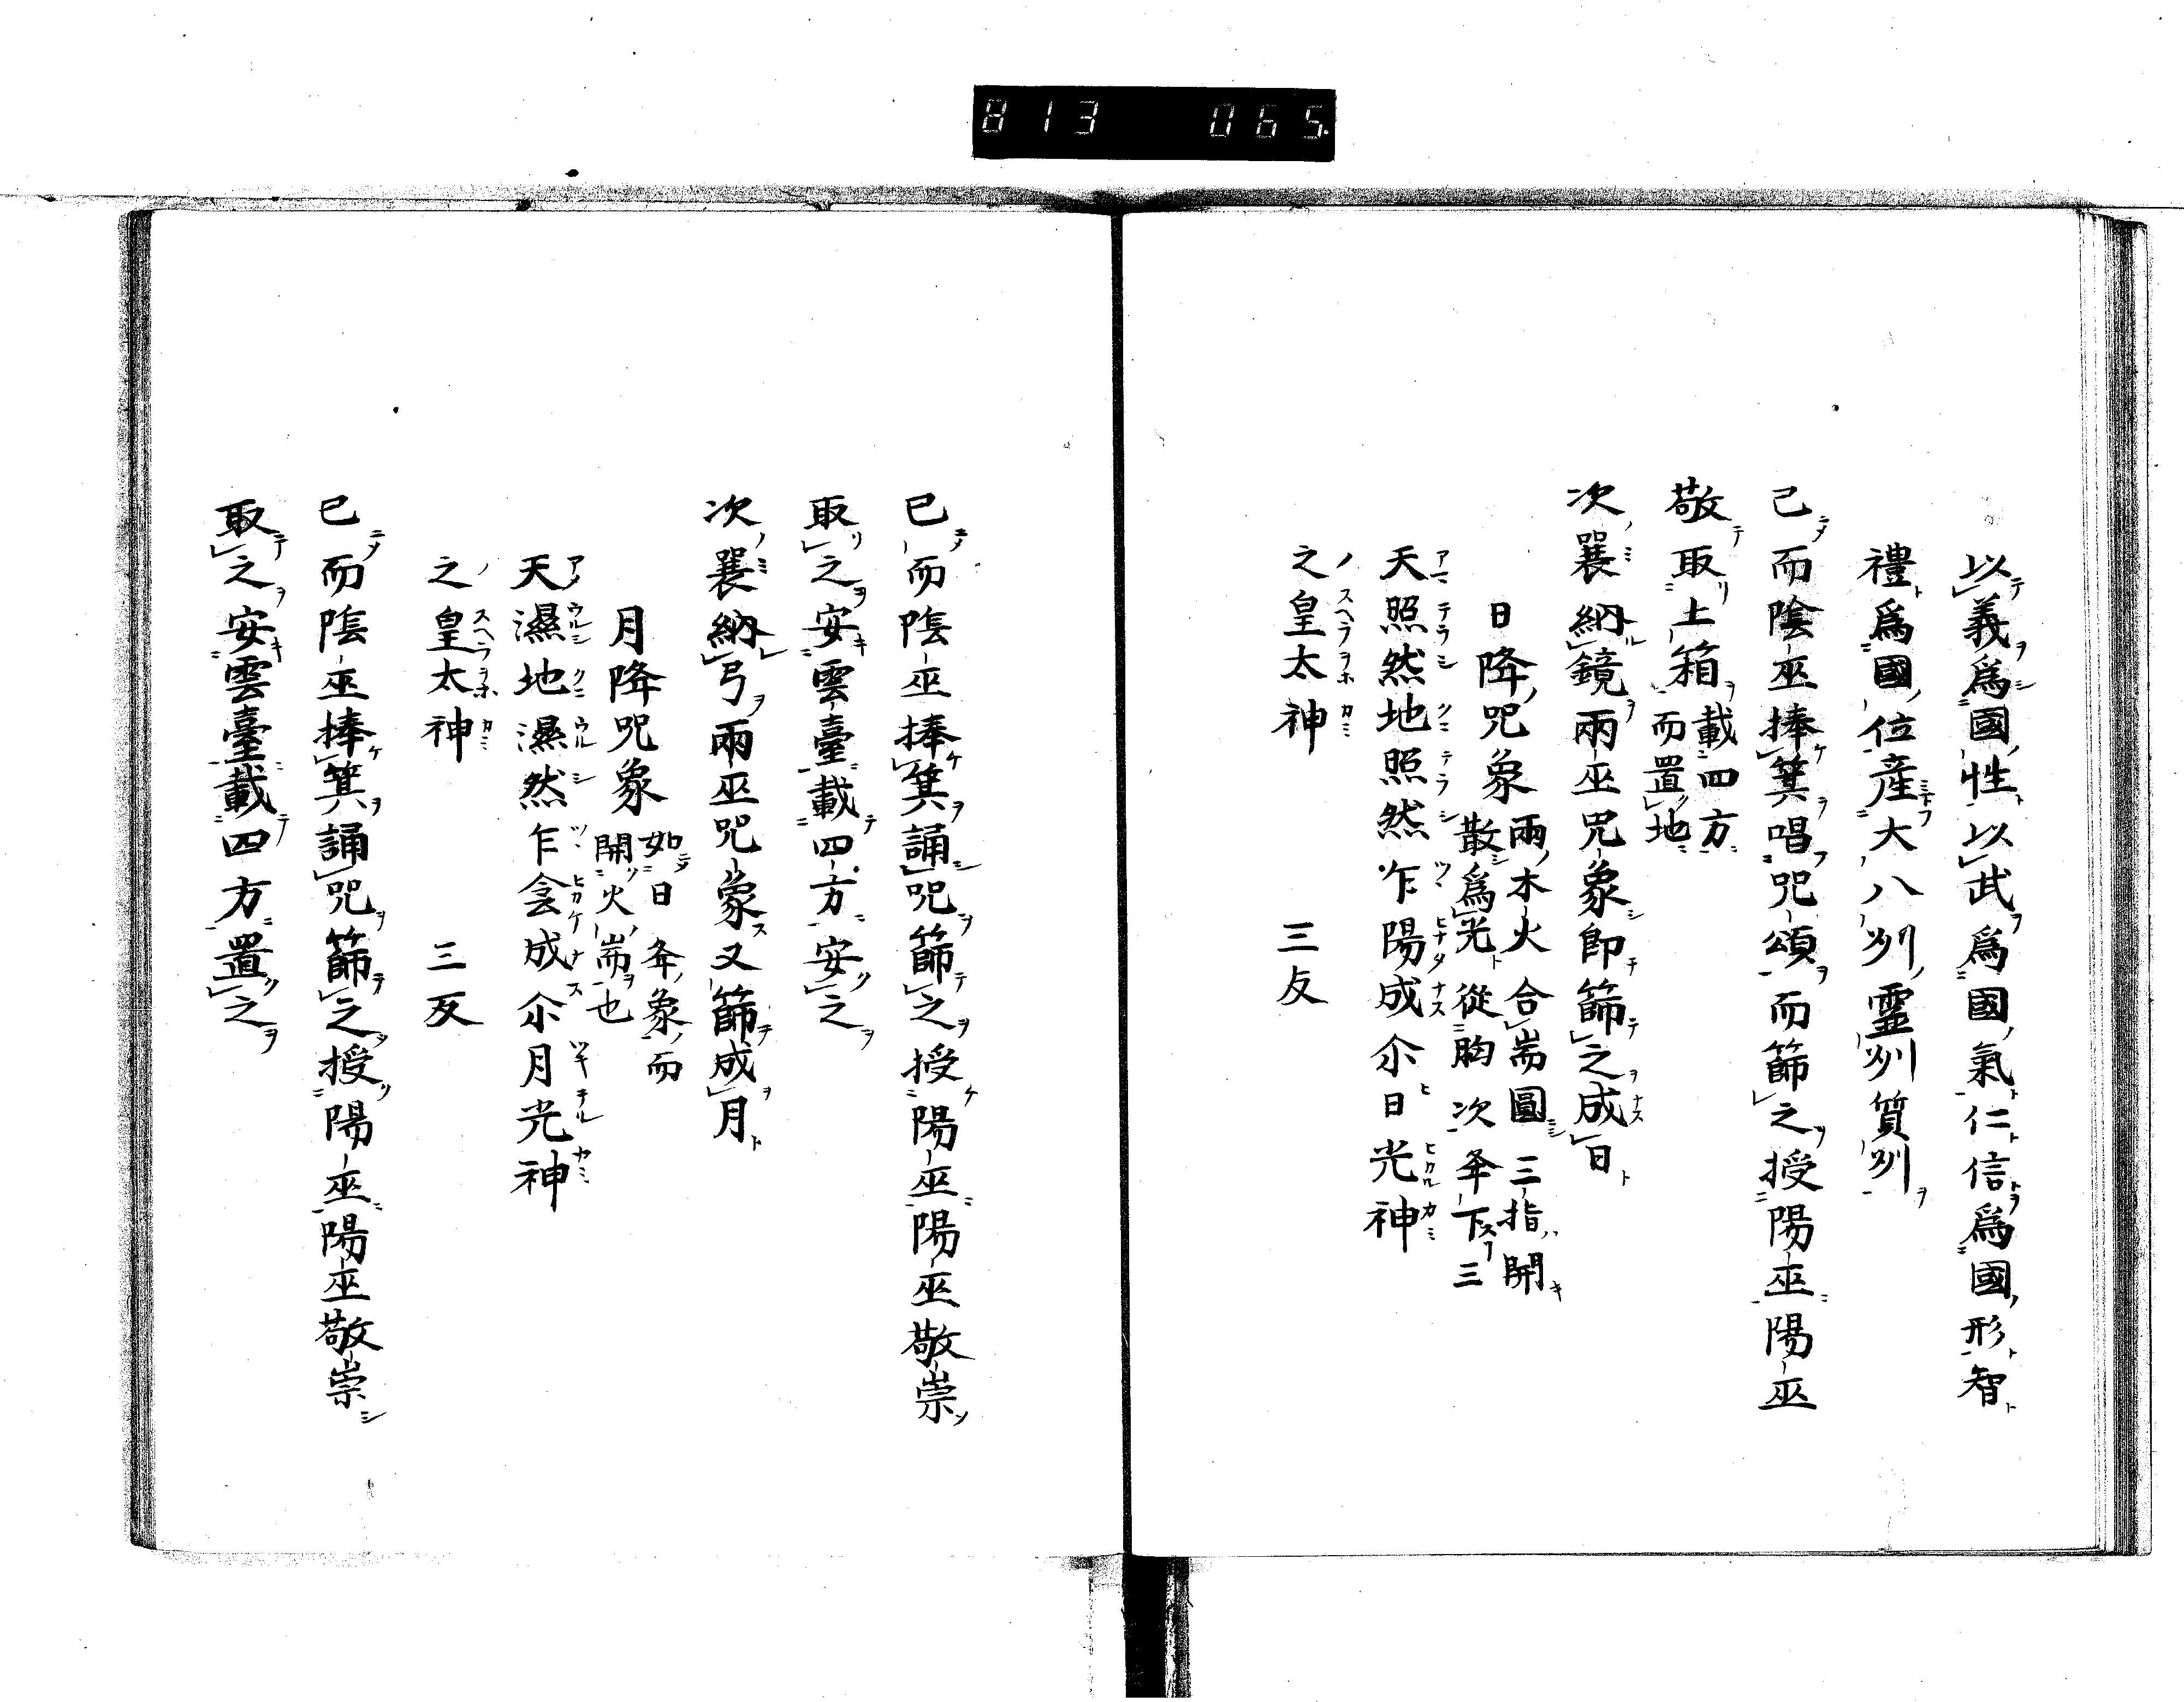 813 065
以義為國性以武為國氣仁信為國形智
禮為國位産大八刕靈刕質刕
已而陰巫捧箕唱咒頌而篩之授陽巫陽巫
敬取土箱載四方
而置地
次襄納鏡兩巫咒象即篩之成日
日降咒象兩木火合耑圓三指開
散為光從胸次夅下三
天照然地照然乍陽成尒日光神
之皇太神 三反
已而陰巫捧箕誦咒篩之授陽巫陽巫敬崇
取之安雲臺載四方安之
次襄納弓兩巫咒象又篩成月
月降咒象如日夅象而
開火耑也
天濕地濕然乍侌成尒月光神
之皇太神 三反
已而陰巫捧箕誦咒篩之授陽巫陽巫敬崇
取之安雲臺載四方置之